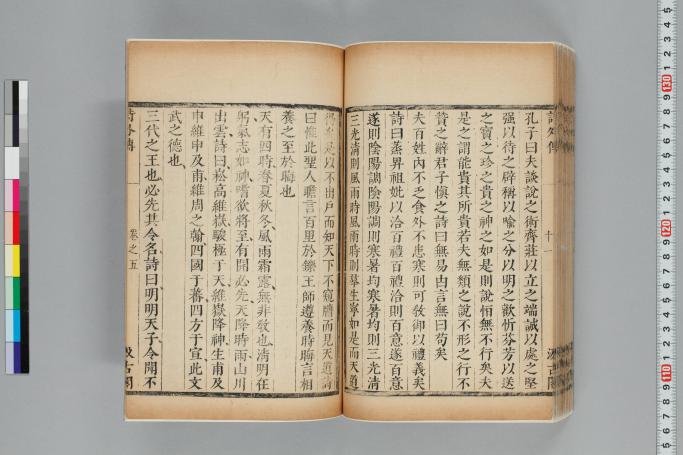 孔子曰夫談說之術齊莊以立之端誠以處之堅
强以待之辟稱以喻之分以明之歡忻芬芳以送
之寶之珍之貴之神之如是則說恒無不行矣夫
是之謂能貴其所貴若夫無類之說不形之行不
贊之辭君子慎之詩曰無易由言無曰苟矣
夫百姓內不乏食外不患寒則可敎御以禮義矣
詩曰蒸畀祖妣以洽百禮百禮洽則百意遂百意
遂則陰陽調陰陽調則寒暑均寒暑均則三光清
三光清則風雨時風雨時則羣生寧如是而天道
得矣是以不出戶而知天下不窺牖而見天道詩
曰惟此聖人瞻言百里於鑠王師遵養時晦言相
養之至於晦也
天有四時春夏秋冬風雨霜露無非敎也清明在
躬氣志如神嗜欲將至有開必先天降時雨山川
出雲詩曰崧高維嶽駿極于天維嶽降神生甫及
申維申及甫維周之翰四國于蕃四方于宣此文
武之德也
三代之王也必先其令名詩曰明明天子令聞不
詩外傳
卷之五
汲古閣
十一